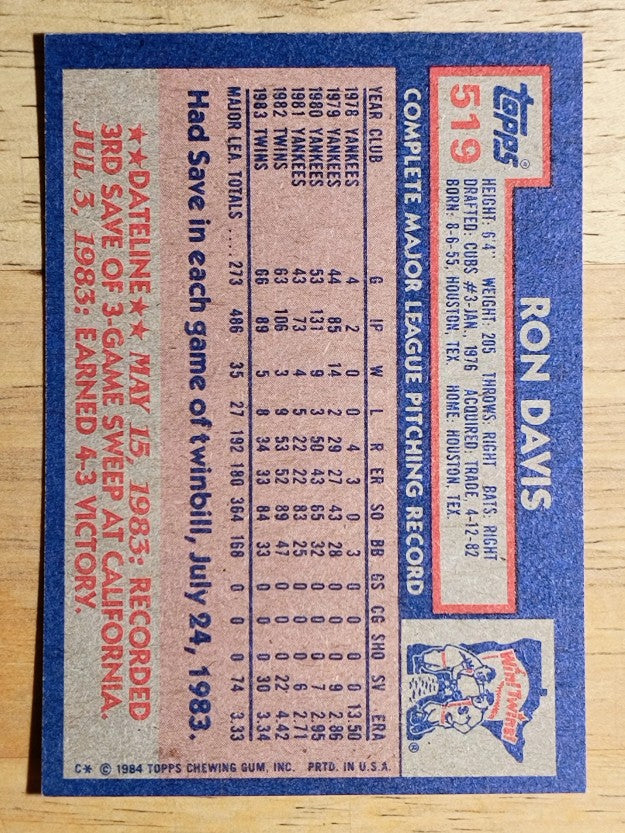 topps®
519
RON DAVIS
HEIGHT: 6'4" WEIGHT: 205 THROWS: RIGHT BATS: RIGHT
DRAFTED: CUBS #3-JAN., 1976 ACQUIRED: TRADE, 4-12-82
BORN: 8-6-55, HOUSTON, TEX. HOME: HOUSTON, TEX.
Win! Twins!
®
COMPLETE MAJOR LEAGUE PITCHING RECORD
YEAR CLUB G IP W L R ER SO BB GS CG SHO SV ERA
1978 YANKEES 4 2 0 0 4 3 0 3 0 0 0 0 13.50
1979 YANKEES 44 85 14 2 29 27 43 28 0 0 0 9 2.86
1980 YANKEES 53 131 9 3 50 43 65 32 0 0 0 7 2.95
1981 YANKEES 43 73 4 5 22 22 83 25 0 0 0 6 2.71
1982 TWINS 63 106 3 9 53 52 89 47 0 0 0 22 4.42
1983 TWINS 66 89 5 8 34 33 84 33 0 0 0 30 3.34
MAJOR LEA. TOTALS .... 273 486 35 27 192 180 364 168 0 0 0 74 3.33
Had Save in each game of twinbill, July 24, 1983.
★★DATELINE★★ MAY 15, 1983: RECORDED
3RD SAVE OF 3-GAME SWEEP AT CALIFORNIA.
JUL 3, 1983: EARNED 4-3 VICTORY.
C* © 1984 TOPPS CHEWING GUM, INC. PRTD. IN U.S.A.